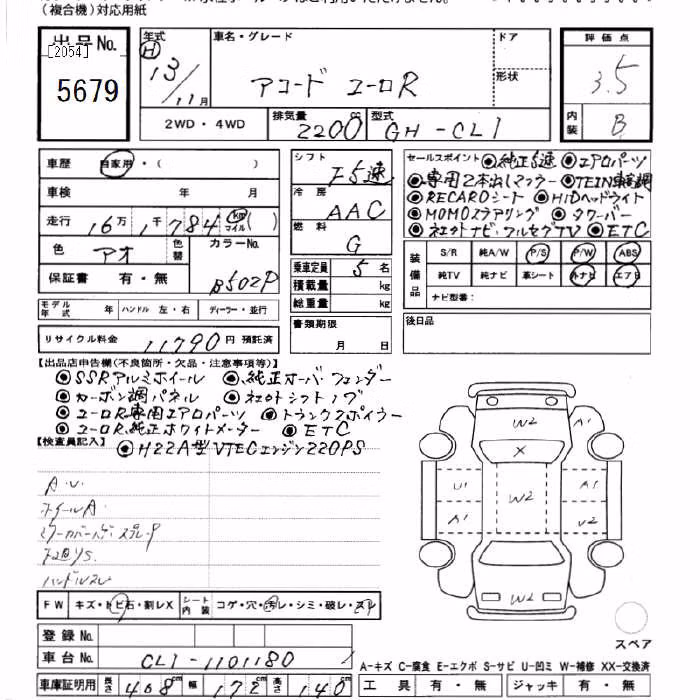 (複合機)対応用紙
出品No.
[2054]
5679
年式
H
13/11月
車名・グレード
アコード ユーロR
ドア
形状
評価点
3.5
2WD・4WD
排気量
2200cc
型式
GH-CL1
内装
B
車歴 自家用・( )
車検 年 月
走行 16万 1千 784 km マイル( )
色 アオ
色替
カラーNo.
B502P
保証書 有・無
モデル年式 年 ハンドル 左・右 ディーラー・並行
リサイクル料金 11790 円 預託済
シフト F5速
冷房 AAC
燃料 G
乗車定員 5 名
積載量 kg
総重量 kg
書類期限
月 日
セールスポイント ◉純正5速 ◉エアロパーツ
◉専用2本出しマフラー ◉TEIN車高調
◉RECAROシート ◉HIDヘッドライト
◉MOMOステアリング ◉タワーバー
◉社外ナビ・フルセグTV ◉ETC
装備品
S/R 純A/W P/S P/W ABS
純TV 純ナビ 革シート 外ナビ エアB
ナビ型番:
後日品
【出品店申告欄(不良箇所・欠品・注意事項等)】
◉SSRアルミホイール ◉純正オーバーフェンダー
◉カーボン調パネル ◉社外シフトノブ
◉ユーロR専用エアロパーツ ◉トランクスポイラー
◉ユーロR純正ホワイトメーター ◉ETC
◉H22A型VTECエンジン220PS
【検査員記入】
A.U.
ホイールA
ハンドルスレ
W2
A1
X
U1
W2
A1
A1
U2
W2
スペア
FW キズ・トビ石・割レX
シート内装 コゲ・穴・汚レ・シミ・破レ・スレ
登録No.
車台No. CL1-1101180
車庫証明用 長さ 468 cm 幅 172 cm 高さ 140 cm
A-キズ C-腐食 E-エクボ S-サビ U-凹ミ W-補修 XX-交換済
工具 有・無 ジャッキ 有・無